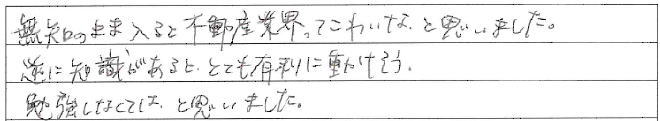 無知のまま入ると不動産業界ってこわいな、と思いました。
逆に知識があると、とても有利に動けそう。
勉強しなくては、と思いました。